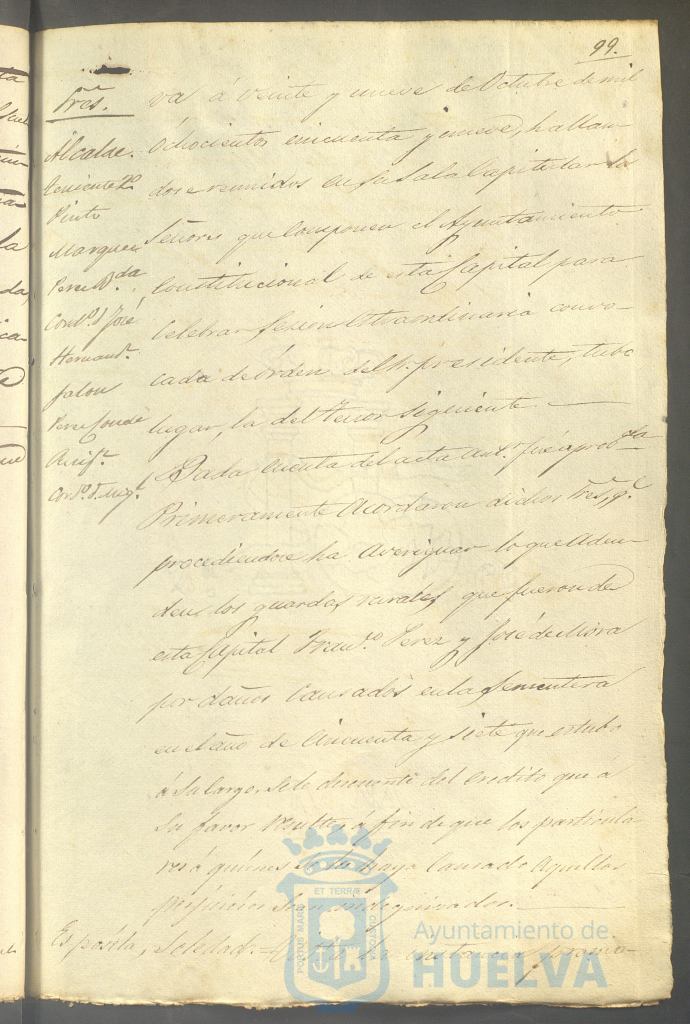 99.
Sres.
Alcalde.
Teniente 2º
Pinto
Marquez
Perez
Conto. D. José
Hernand.
Jalon
Perez Conde
va á veinte y nueve de Octubre de mil
ochocientos cincuenta y nueve, hallan-
dose reunidos en su Sala Capitular los
Señores que componen el Ayuntamiento
Constitucional de esta Capital para
celebrar sesion estraordinaria convo-
cada de órden del Sr. presidente, tubo
lugar, la del tenor siguiente.
Dada cuenta del acta antr. fué aprobda
Primeramente acordaron dichos Sres, qe
procediendose ha averiguar lo que adeu-
den los guardas rurales que fueron de
esta Capital Franco. Perez y José de Mora
por daños causados en la sementera
en el año de cincuenta y siete que estubo
á su cargo, se le descuente del credito que á
su favor resulte, á fin de que los particula-
res á quienes se les haya causado aquellos
perjuicios sean indegnizados.
Espósita, Soledad.
instancia
PORTUS MARIS
ET TERRÆ
CUSTODIA
Ayuntamiento de
HUELVA